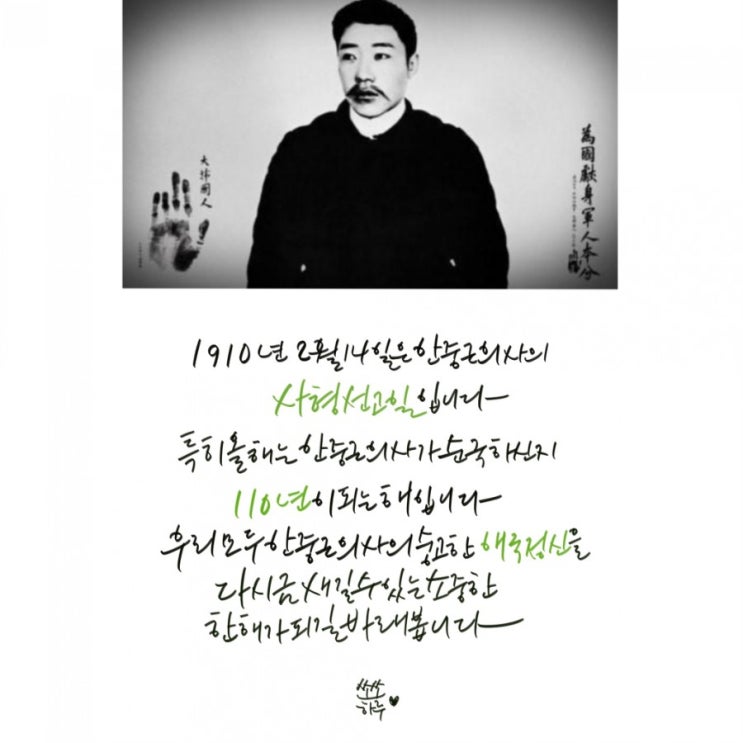 大韓國人
為國獻身軍人本分
1910년 2월 14일은 안중근의사의
사형선고일입니다
특히 올해는 안중근의사가 순국하신지
110년이 되는 해입니다
우리 모두 안중근의사의 숭고한 애국정신을
다시금 새길 수 있는 소중한
한해가 되길 바래봅니다
쏘쏘
하루